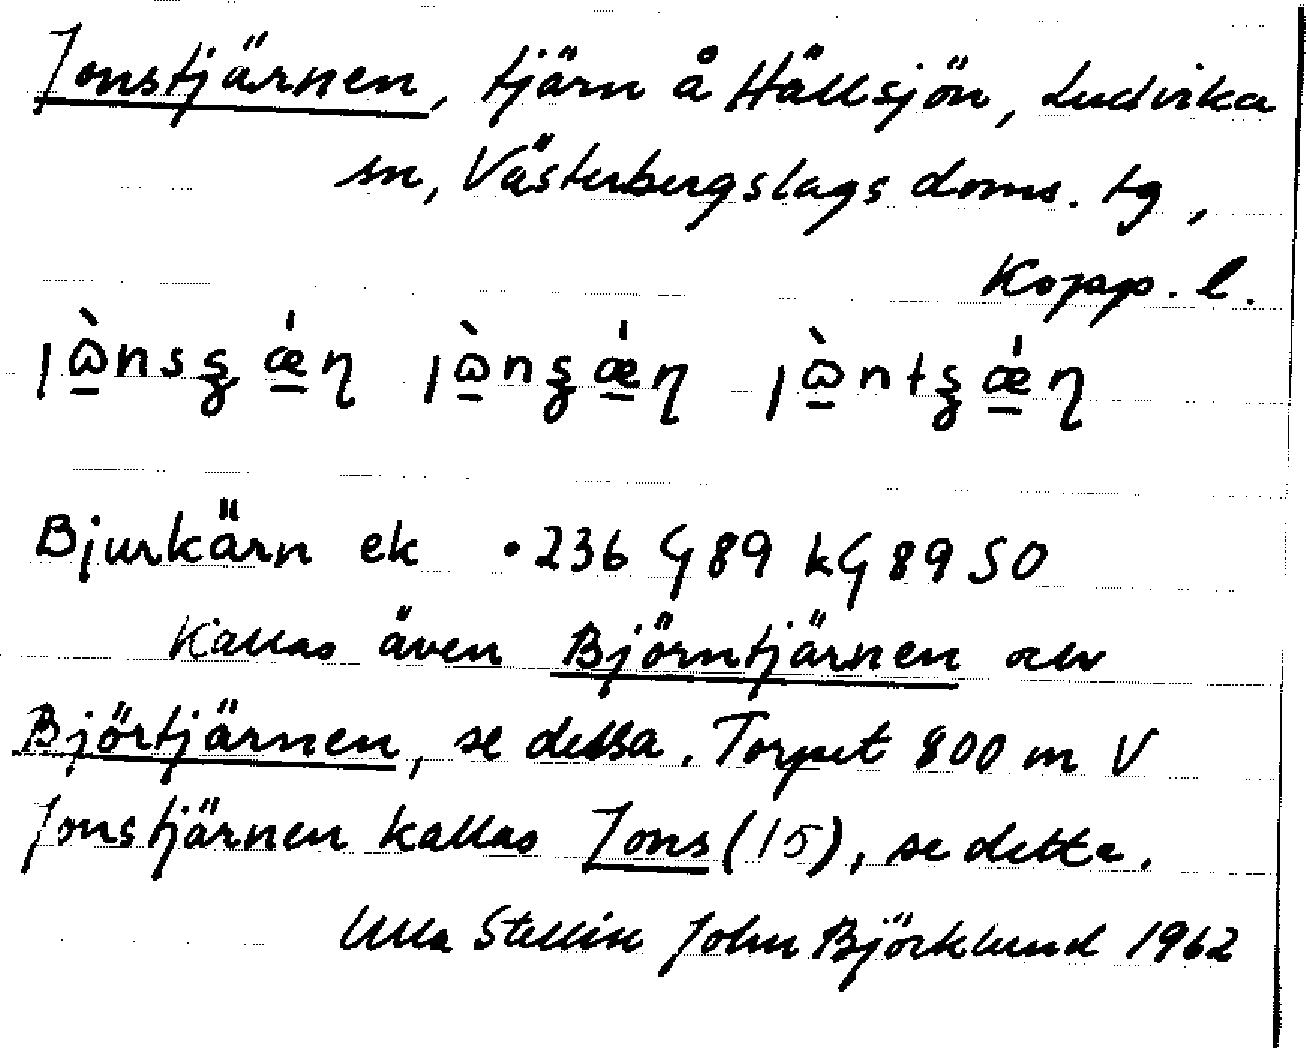 Jonstjärnen, tjärn å Hällsjön, Ludvika
sn, Västerbergslags doms. tg,
Kopp. l.
Bjurkärn ek •236 G89 kG89 SO
Kallas även Björntjärnen elw
Björtjärnen, se dessa. Torpet 800 m V
Jonstjärnen kallas Jons (15), se detta.
Ulla Stellin John Björklund 1962